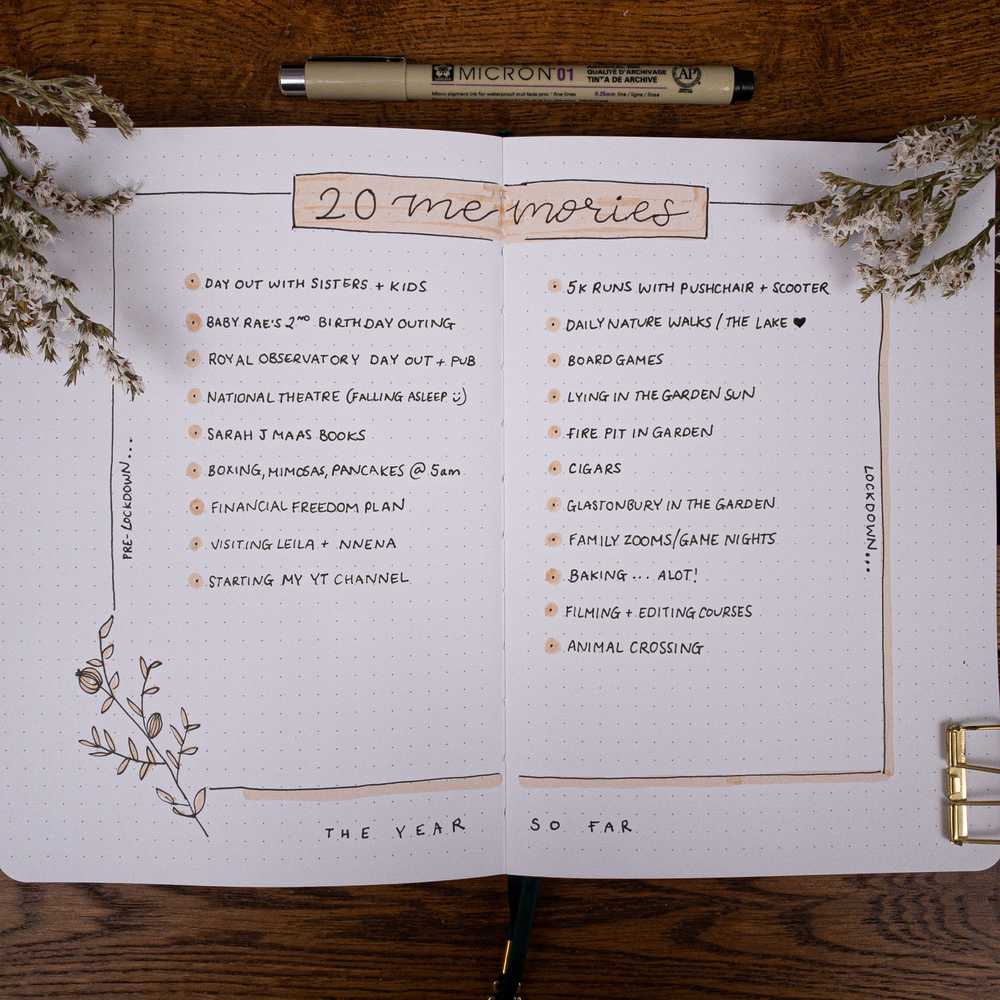 MICRON 01
QUALITÉ D'ARCHIVAGE
TINTA DE ARCHIVE
AP
20 memories
DAY OUT WITH SISTERS + KIDS
BABY RAE'S 2ND BIRTHDAY OUTING
ROYAL OBSERVATORY DAY OUT + PUB
NATIONAL THEATRE (FALLING ASLEEP Ü)
SARAH J MAAS BOOKS
BOXING, MIMOSAS, PANCAKES @ 5am
FINANCIAL FREEDOM PLAN
VISITING LEILA + NNENA
STARTING MY YT CHANNEL
PRE-LOCKDOWN...
5K RUNS WITH PUSHCHAIR + SCOOTER
DAILY NATURE WALKS / THE LAKE ♥
BOARD GAMES
LYING IN THE GARDEN SUN
FIRE PIT IN GARDEN
CIGARS
GLASTONBURY IN THE GARDEN
FAMILY ZOOMS/GAME NIGHTS
BAKING... ALOT!
FILMING + EDITING COURSES
ANIMAL CROSSING
LOCKDOWN...
THE YEAR SO FAR